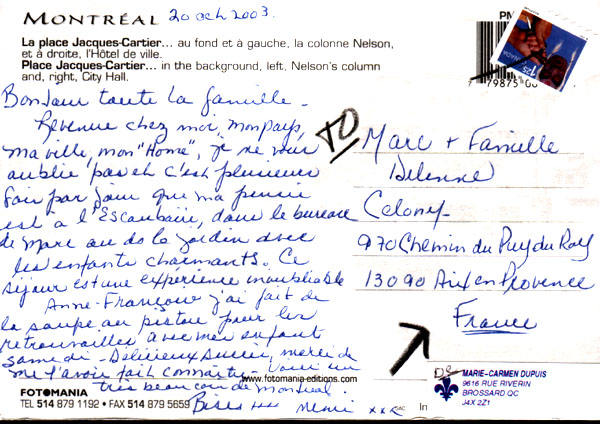 MONTRÉAL 20 oct 2003.
La place Jacques-Cartier... au fond et à gauche, la colonne Nelson,
et à droite, l'Hôtel de ville.
Place Jacques-Cartier... in the background, left, Nelson's column
and, right, City Hall.
Bonjour toute la famille.
Revenue chez moi, mon pays,
ma ville, mon "Home", je ne vous
oublie pas et c'est plusieurs
fois par jour que ma pensée
est à l'Escanbaire, dans le bureau
de Marc au do la jardin avec
les enfants charmants. Ce
séjour est une expérience inoubliable
Anne-Françoise j'ai fait de
la soupe au pistou pour les
retrouvailles avec mes enfant
samedi - Délicieux aussi, merci de
me l'avoir fait connaître. Voici un
très beau coin de Montréal.
Bises xxx Memi xxx
TO
Marc + Famille
Delenne
Colony
970 Chemin du Puy du Roy
13090 Aix en Provence
France
PM
79875 00
CANADA
1.25
www.fotomania-editions.com
FOTOMANIA
TEL 514 879 1192 • FAX 514 879 5659
In
De
MARIE-CARMEN DUPUIS
9616 RUE RIVERIN
BROSSARD QC
J4X 2Z1